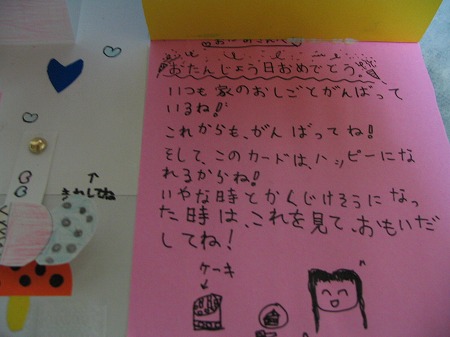 おたんじょう日おめでとう。
いつも家のおしごとがんばって
いるね!!
これからも、がんばってね!
そして、このカードは、ハッピーにな
れるからね!
いやな時とかくじけそうになっ
た時は、これを見て、おもいだ
してね!
ケーキ